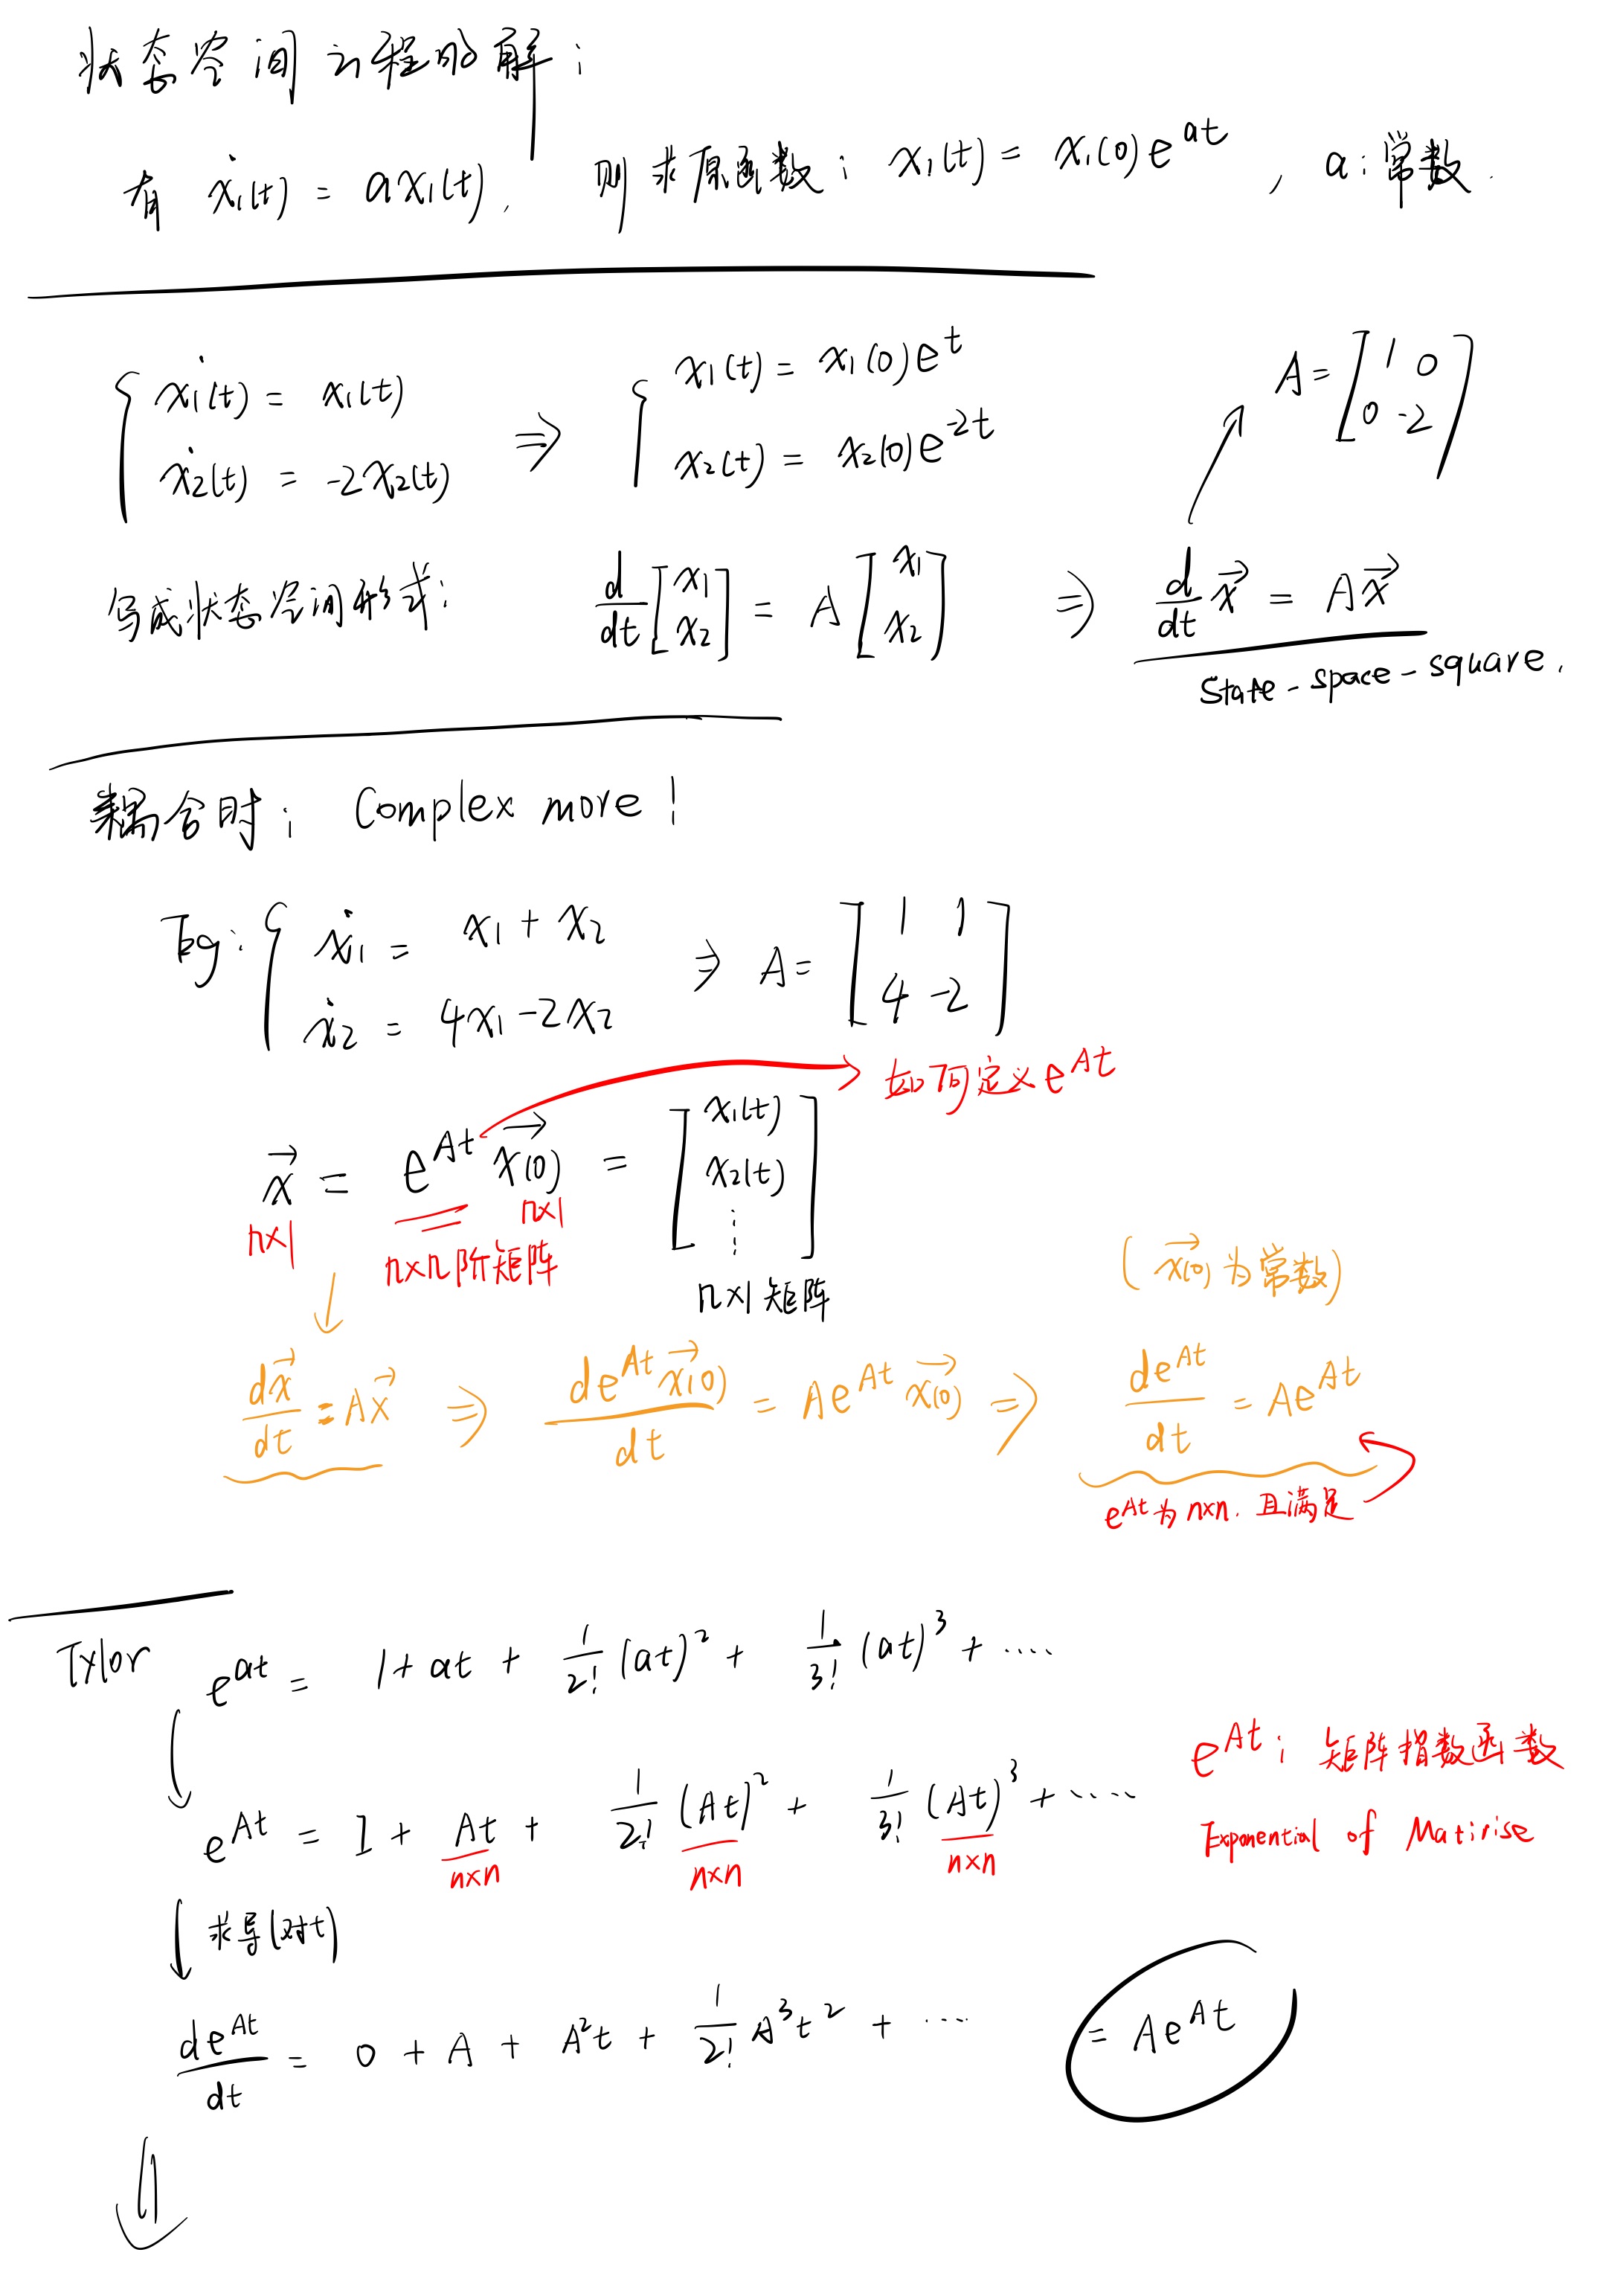 状态空间方程的解：
有 ẋ₁(t) = ax₁(t), 则求原函数： x₁(t) = x₁(0)e^{at} , a：常数.
{ ẋ₁(t) = x₁(t) ⇒ { x₁(t) = x₁(0)e^{t} A = [1 0
ẋ₂(t) = -2x₂(t) x₂(t) = x₂(0)e^{-2t} 0 -2]
写成状态空间形式： d/dt [x₁ x₂] = A [x₁ x₂] ⇒ d/dt x⃗ = Ax⃗
State-space-square.
耦合时： Complex more!
Eg: { ẋ₁ = x₁ + x₂ ⇒ A = [1 1
ẋ₂ = 4x₁ - 2x₂ 4 -2]
如何定义e^{At}
x⃗ = e^{At} x⃗(0) = [x₁(t) x₂(t) ⋮]
n×1 n×n阶矩阵 n×1 n×1矩阵
(x⃗(0)为常数)
dx⃗/dt = Ax⃗ ⇒ de^{At}x⃗(0)/dt = Ae^{At}x⃗(0) ⇒ de^{At}/dt = Ae^{At}
e^{At}为n×n. 且满足
Tylor e^{at} = 1 + at + 1/2! (at)² + 1/3! (at)³ + ····
e^{At}： 矩阵指数函数
e^{At} = I + At + 1/2! (At)² + 1/3! (At)³ + ·····
n×n n×n n×n
Exponential of Matirise
求导(对t)
de^{At}/dt = 0 + A + A²t + 1/2! A³t² + ···· = Ae^{At}